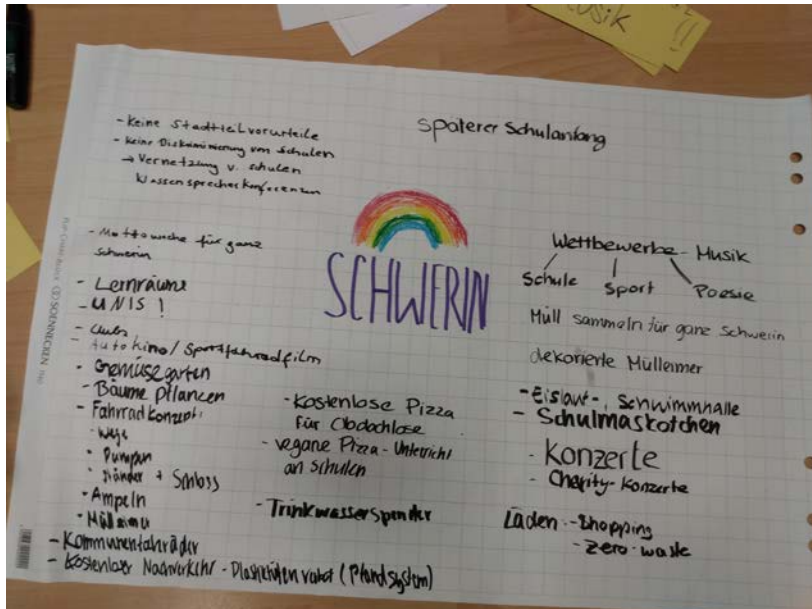 usik
Späterer Schulanfang
- Keine Stadtteilvorurteile
- Keine Diskriminierung von Schulen
→ Vernetzung v. schulen
Klassensprecherkonferenzen
- Mottowoche für ganz
schwerin
- Lernräume
- UNIS !
- Clubs
- Autokino / Sportfahrradfilm
- Gemüsegarten
- Bäume pflanzen
- Fahrradkonzept:
• Wege
• Pumpen
• Ständer + Schloss
- Ampeln
- Mülleimer
- Kommunenfahrräder
- Kostenloser Nahverkehr - Plastiktütenverbot (Pfandsystem)
SCHWERIN
- Kostenlose Pizza
für Obdachlose
- vegane Pizza - Unterricht
an schulen
- Trinkwasserspender
Wettbewerbe - Musik
Schule Sport Poesie
Müll sammeln für ganz Schwerin
dekorierte Mülleimer
- Eislauf-, Schwimmhalle
- Schulmaskotchen
- Konzerte
- Charity-Konzerte
Läden: - Shopping
- Zero-waste
SOENNECKEN